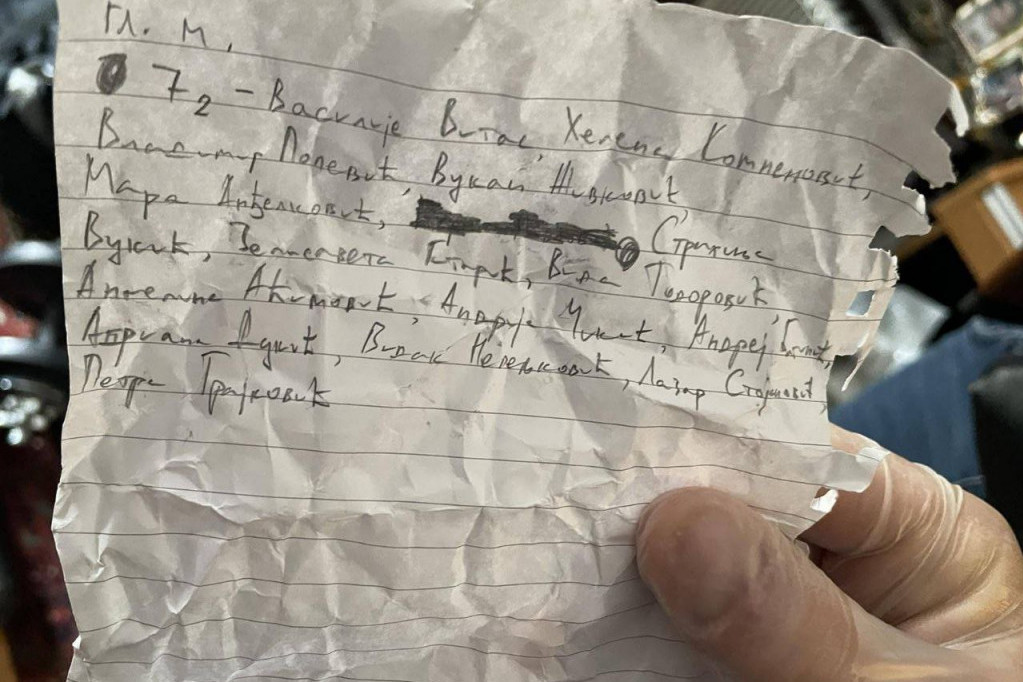 Гл. М.
7₂ - Василије Витас, Хелена Комненовић,
Владимир Попевић, Вукан Живковић,
Мара Анђелковић, Страхиња
Вукић, Елисавета Вида Тодоровић,
Ангелина Акимовић, Андрија Чикић, Андреј
Адриана Дукић, Видак Недељковић, Лазар Стојановић,
Петра Трајковић